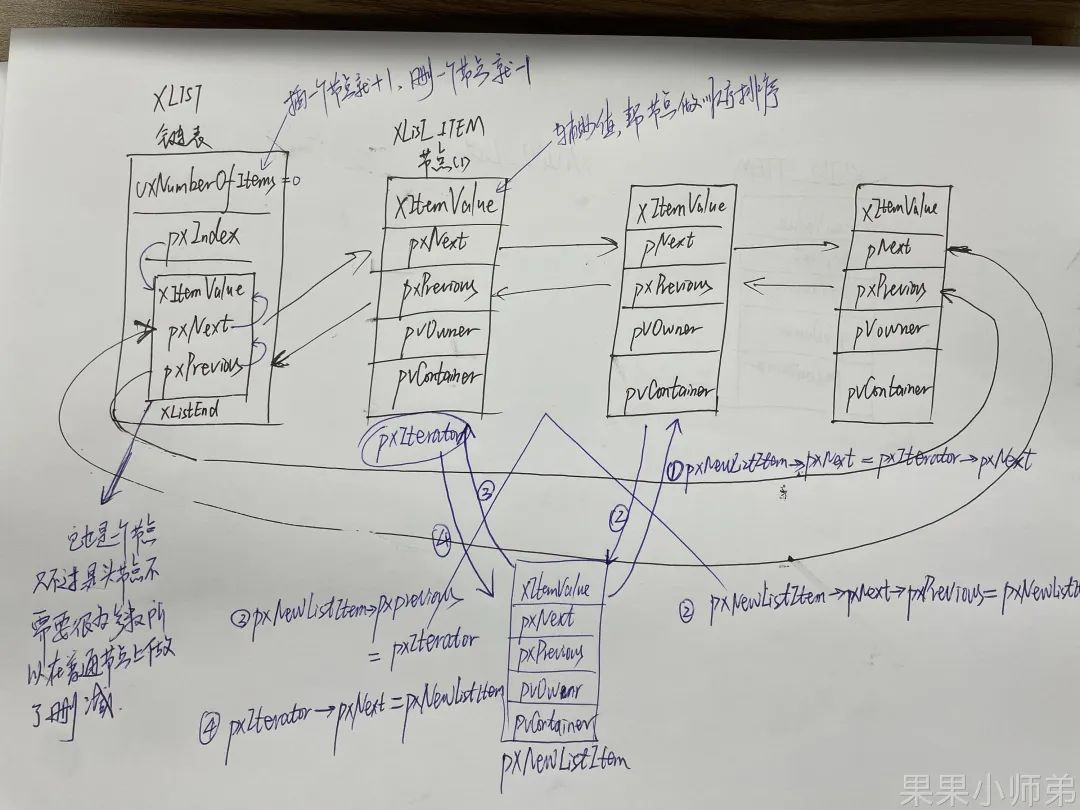 XLIST
链表
插一个节点就+1、删一个节点就-1
uxNumberOfItems=0
pxIndex
xItemValue
pxNext
pxPrevious
xListEnd
XLIST_ITEM
节点(1)
辅助值,帮节点做顺序排序
XItemValue
pxNext
pxPrevious
pvOwner
pvContainer
XItemValue
pNext
pxPrevious
pvOwner
pvContainer
XItemValue
pNext
pxPrevious
pvowner
pvContainer
pxIterator
①pxNewListItem→pxNext=pxIterator→pxNext
③
②
④
它也是一个节点
只不过是头节点不
需要很多参数,所
以在普通节点上做
了删减.
② pxNewListItem→pxNext→pxPrevious=pxNewListI
③pxNewListItem→pxprevious
=pxIterator
④ pxIterator→pxNext=pxNewListItem
xItemValue
pxNext
pxPrevious
pvOwenr
pvContainer
pxNewListItem
果果小师弟